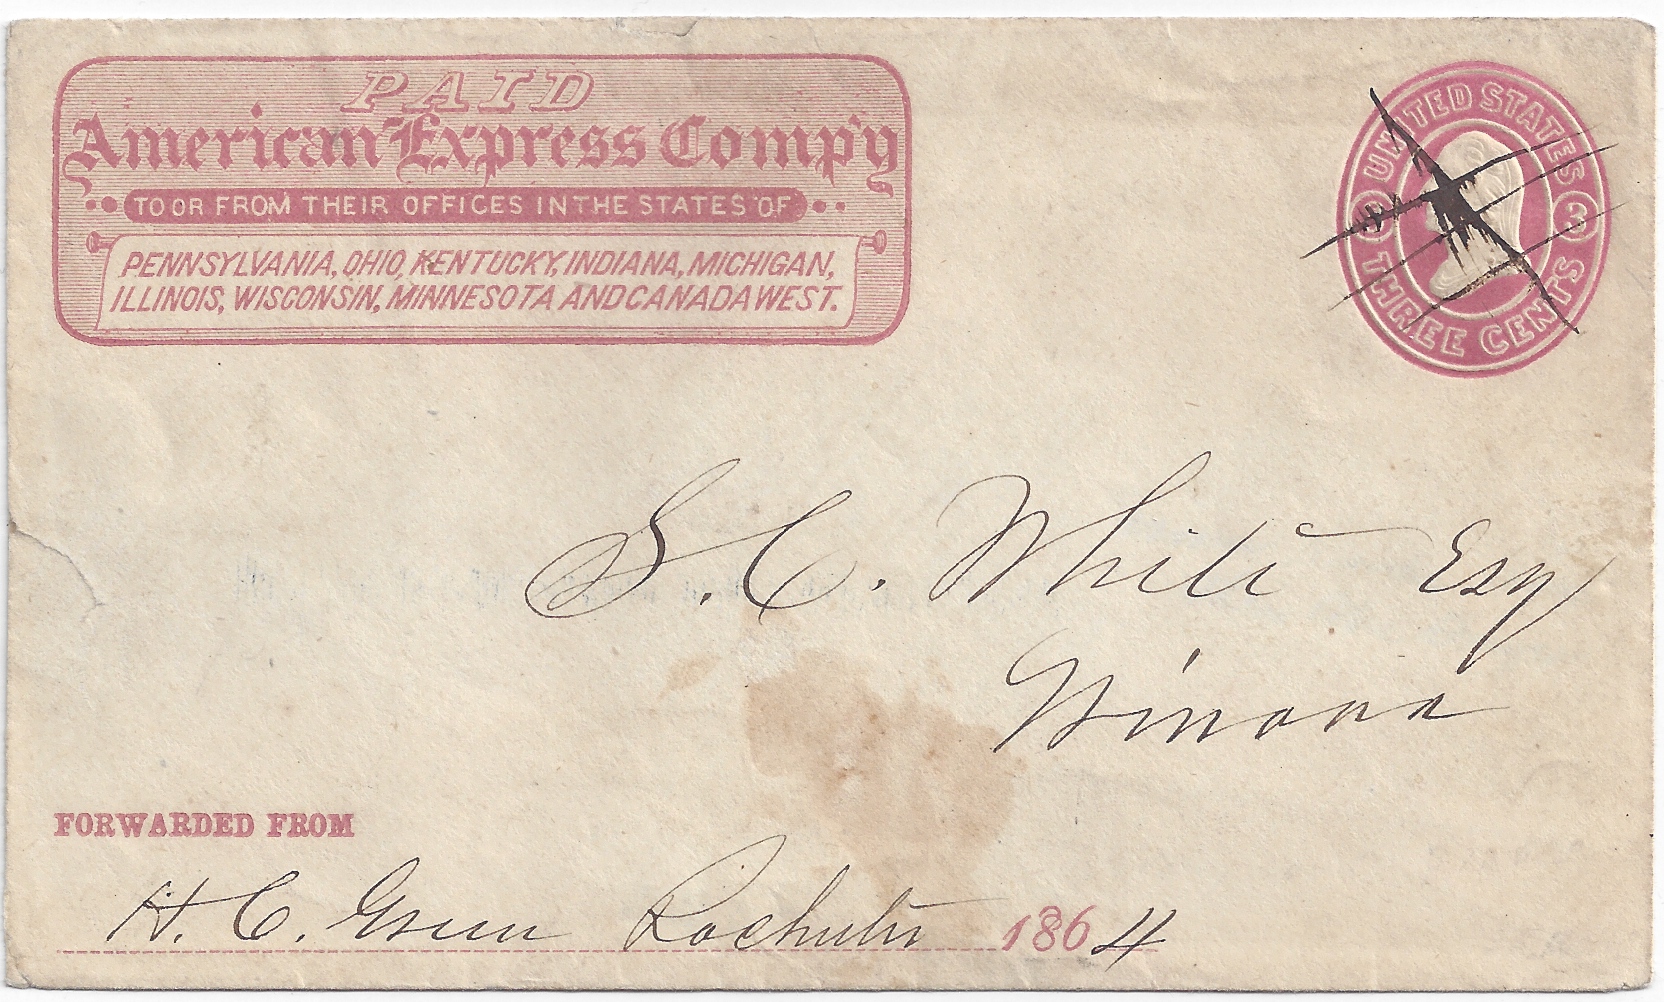 PAID
American Express Comp'y
TO OR FROM THEIR OFFICES IN THE STATES OF
PENNSYLVANIA, OHIO, KENTUCKY, INDIANA, MICHIGAN,
ILLINOIS, WISCONSIN, MINNESOTA AND CANADA WEST.
UNITED STATES
3 3
THREE CENTS
S. C. White Esq
Winona
FORWARDED FROM
H. C. Green Rochester 1864